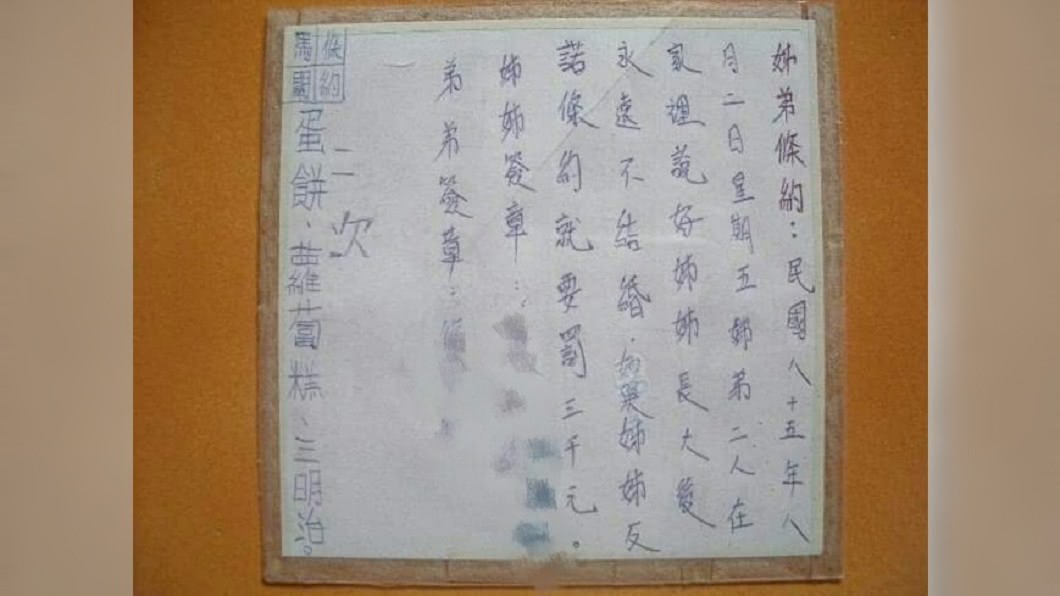 姊弟條約：民國八十五年八
月二日星期五姊弟二人在
家裡說好姊姊長大後
永遠不結婚，如果姊姊反
諾條約就要罰三千元。
姊姊簽章：
弟弟簽章：
二次
條約
馬關
蛋餅、蘿蔔糕、三明治。